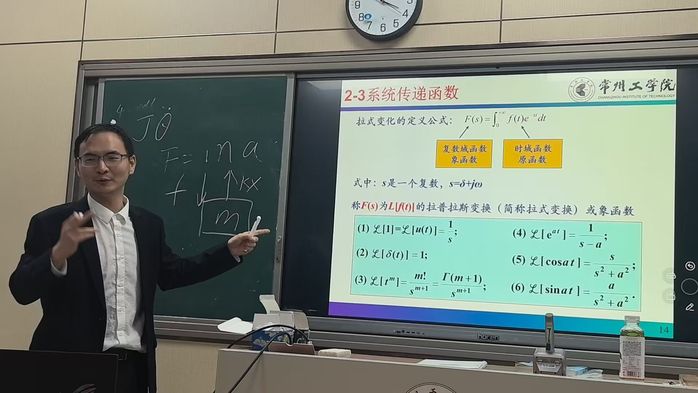 2-3系统传递函数
常州工学院
CHANGZHOU INSTITUTE OF TECHNOLOGY
拉式变化的定义公式: F(s)=∫₀⁺∞ f(t)e⁻ˢᵗdt
复数域函数
象函数
时域函数
原函数
式中: s是一个复数, s=δ+jω
称F(s)为L[f(t)]的拉普拉斯变换（简称拉式变换）或象函数
(1) ℒ[1]=ℒ[u(t)]=1/s;
(2) ℒ[δ(t)]=1;
(3) ℒ[tᵐ]=m!/sᵐ⁺¹=Γ(m+1)/sᵐ⁺¹;
(4) ℒ[eᵃᵗ]=1/(s-a);
(5) ℒ[cosat]=s/(s²+a²);
(6) ℒ[sinat]=a/(s²+a²).
14
Jθ̈
F=ma
f
kx
m